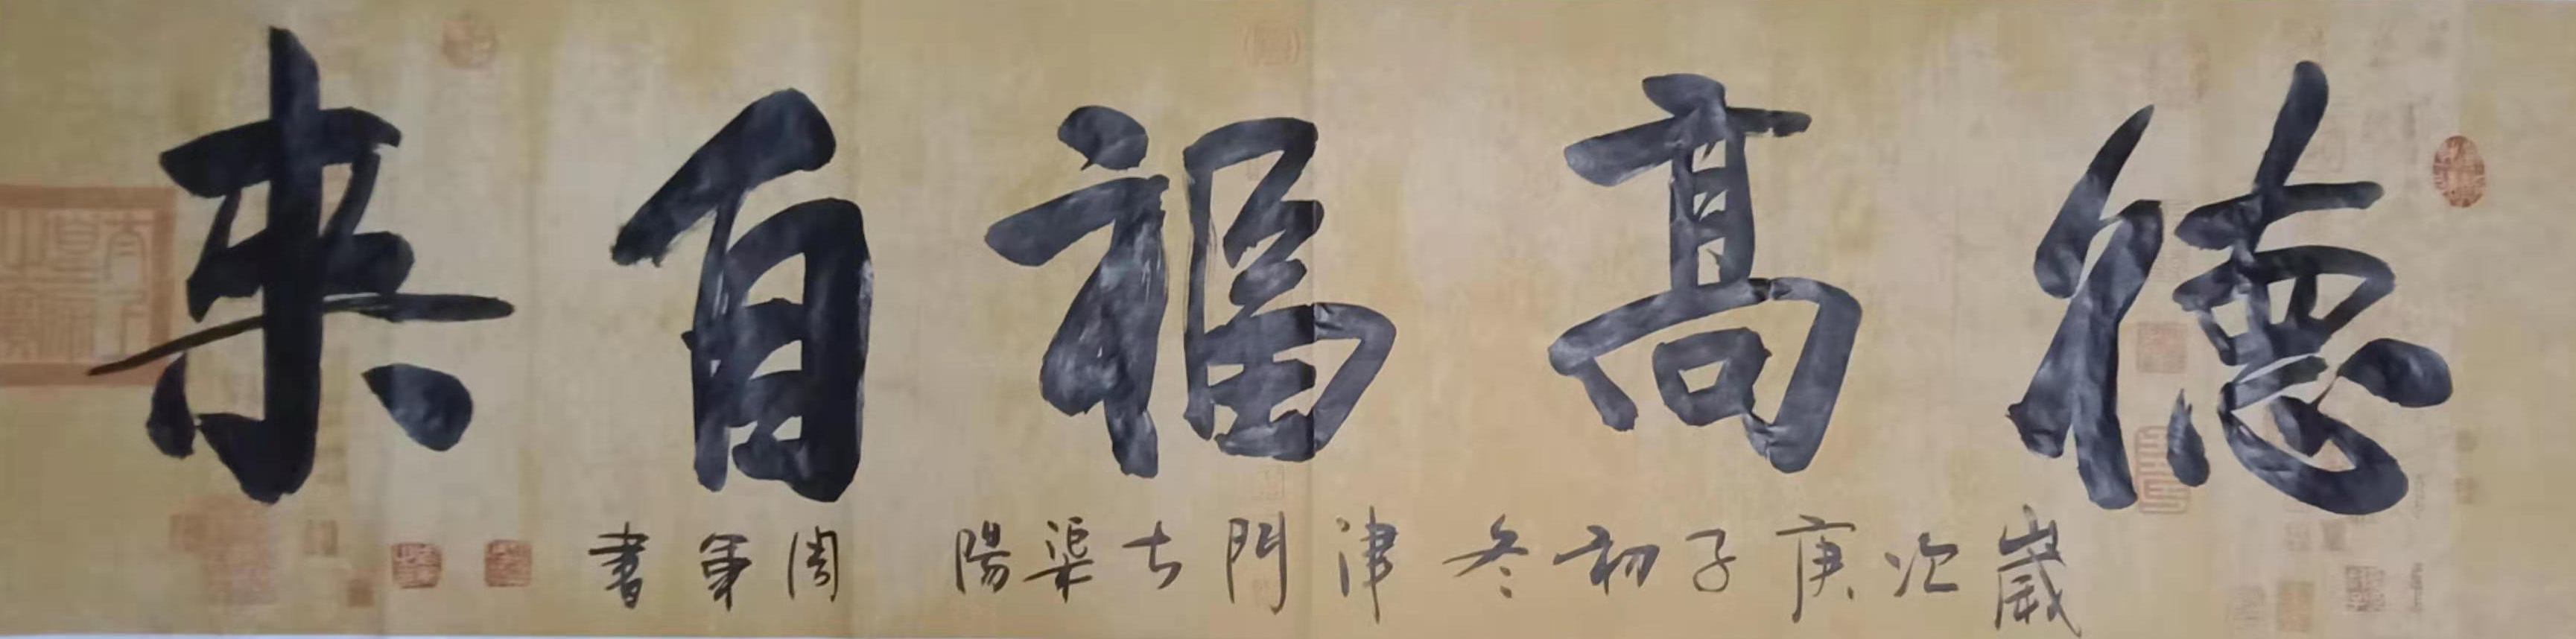 德高福自来
歲次庚子初冬津門古渠陽周軍書